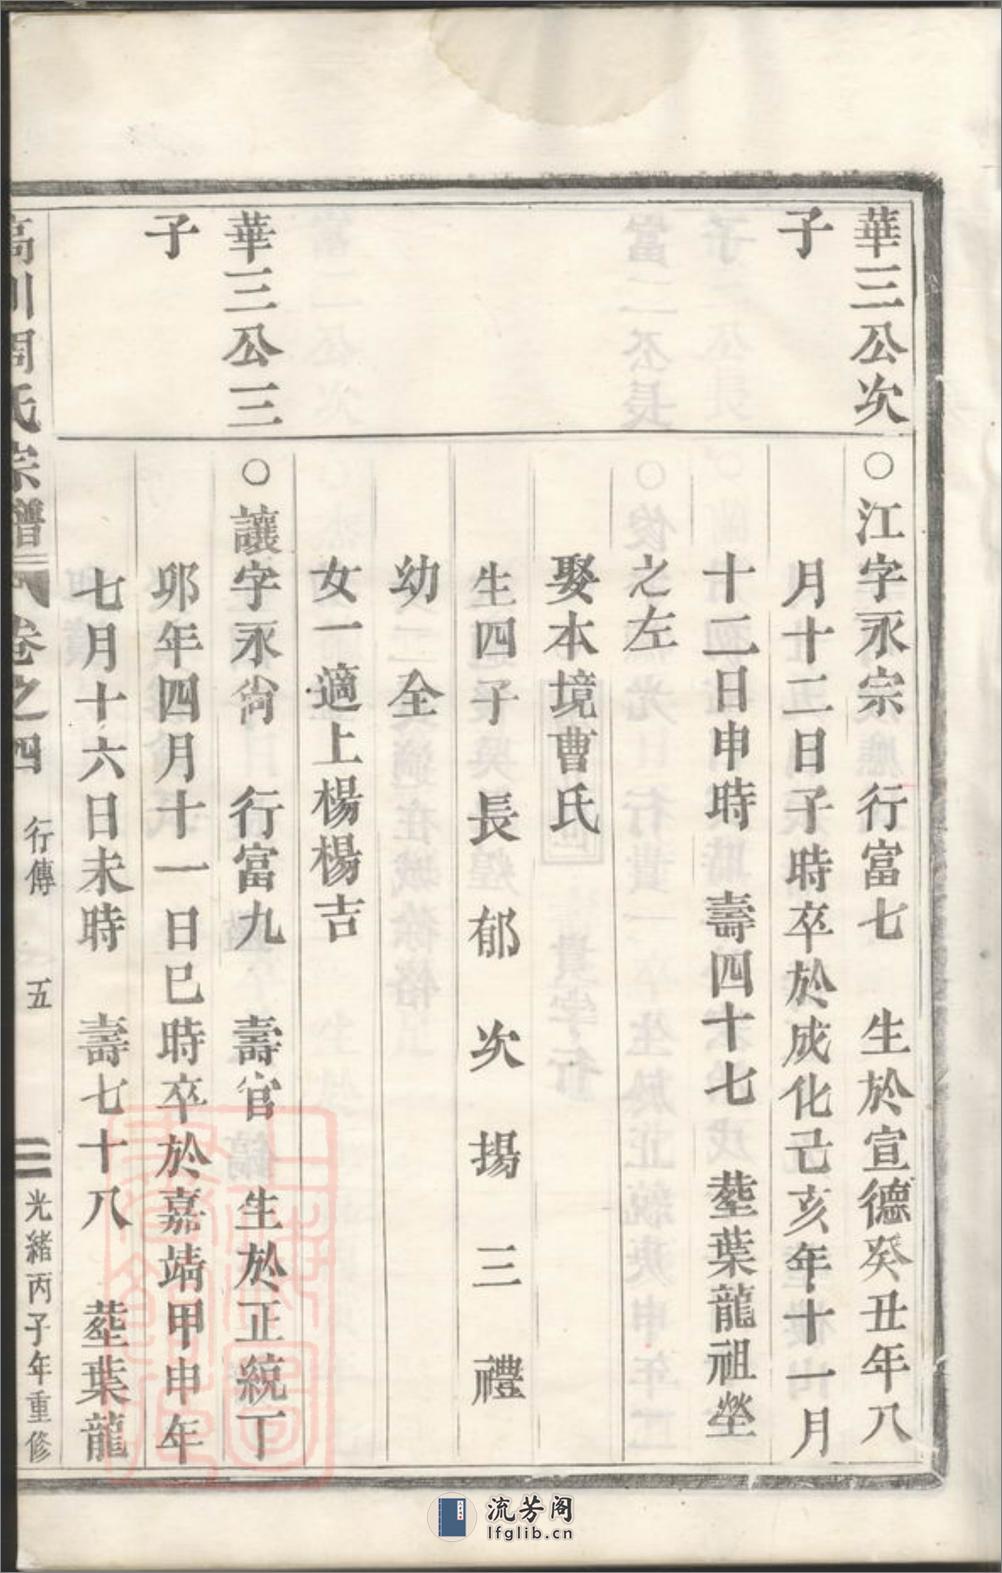 華三公次
子
○江字永宗 行富七 生於宣德癸丑年八
月十二日子時卒於成化己亥年十一月
十二日申時 壽四十七 塟葉龍祖塋
之左
娶本境曹氏
生四子 長郁 次揚 三禮
幼全
女一適上楊楊吉
華三公三
子
○讓字永尙 行富九 壽官 生於正統丁
邜年四月十一日巳時卒於嘉靖甲申年
七月十六日未時 壽七十八 塟葉龍
周氏宗譜 卷之四 行傳 五 光緒丙子年重修
流芳阁
lfglib.cn